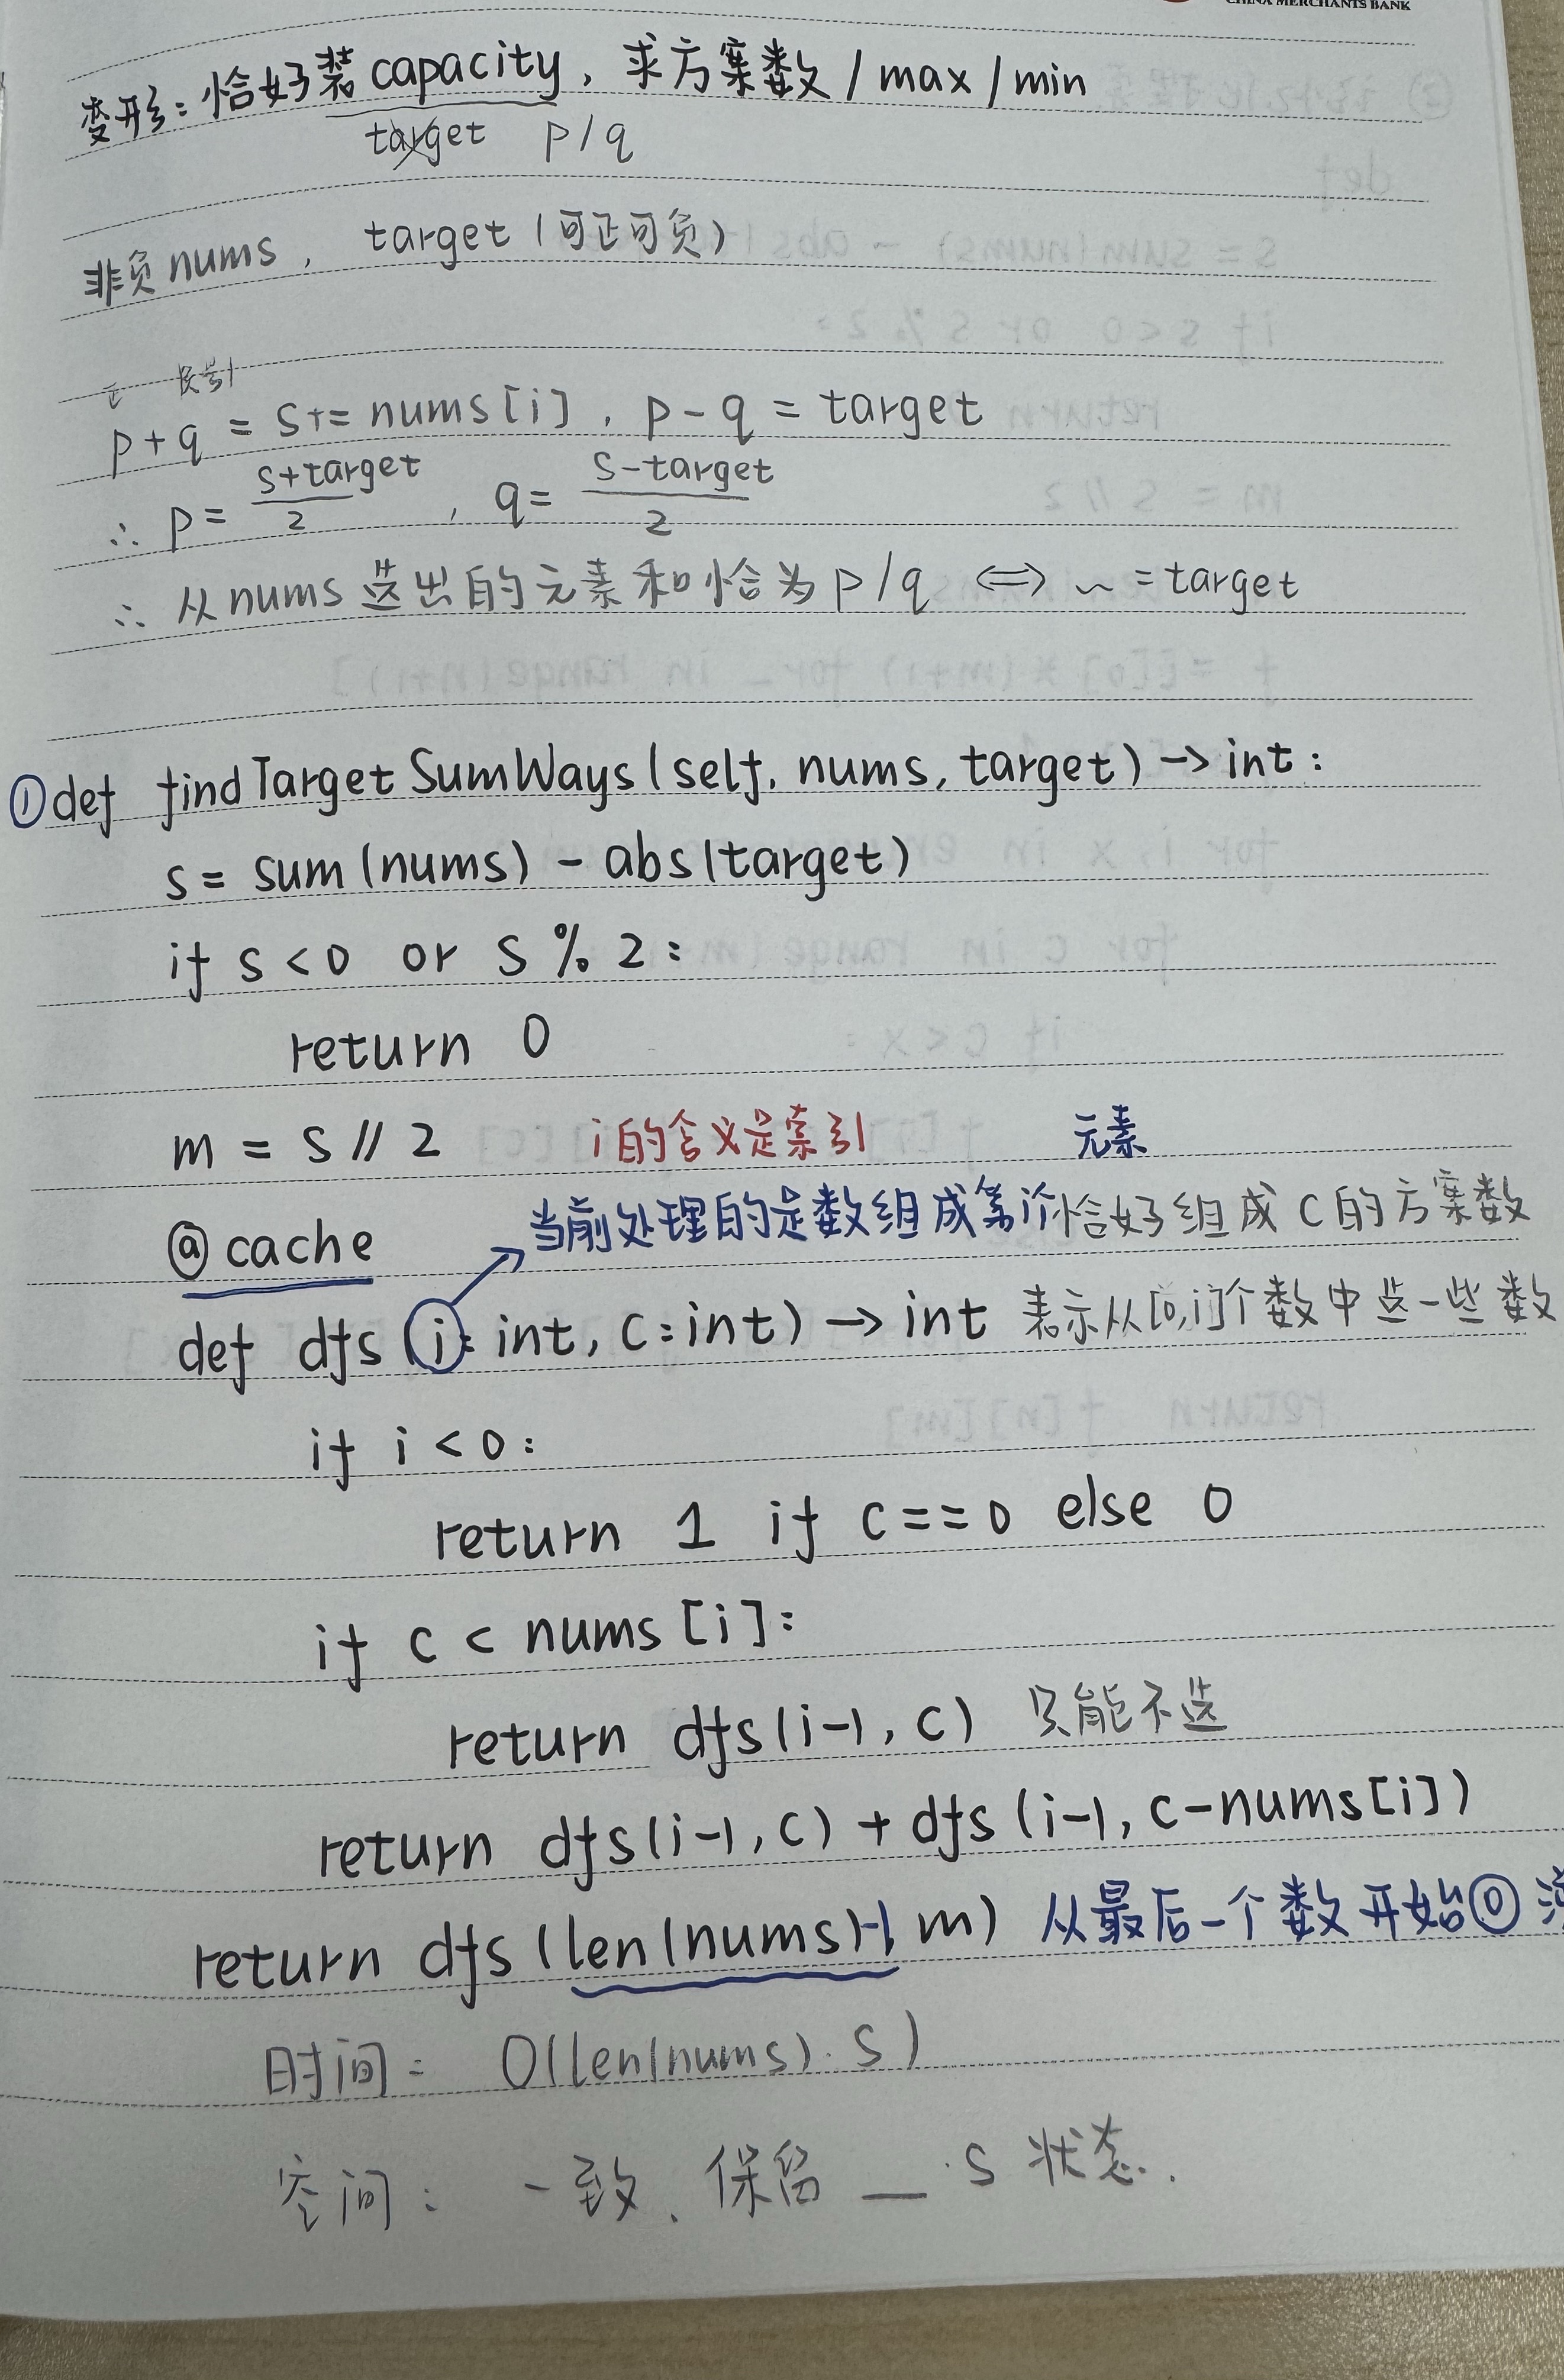 CHINA MERCHANTS BANK
变形：恰好装 capacity，求方案数 / max / min
target p/q
非负 nums， target（可正可负）
正 负号
p+q = s += nums[i]，p-q = target
∴ p = (s+target)/2 ，q = (s-target)/2
∴ 从 nums 选出的元素和恰为 p/q ⟺ ~ = target
① def findTargetSumWays(self, nums, target) -> int:
s = sum(nums) - abs(target)
if s < 0 or s % 2:
return 0
m = s // 2 i 的含义是索引 元素
@cache 当前处理的是数组成第i个 恰好组成 c 的方案数
def dfs(i: int, c: int) -> int 表示从[0,i]个数中选一些数
if i < 0:
return 1 if c == 0 else 0
if c < nums[i]:
return dfs(i-1, c) 只能不选
return dfs(i-1, c) + dfs(i-1, c-nums[i])
return dfs(len(nums)-1, m) 从最后一个数开始⓪
时间： O(len(nums)·s)
空间： 一致、保留 __ ·s 状态.